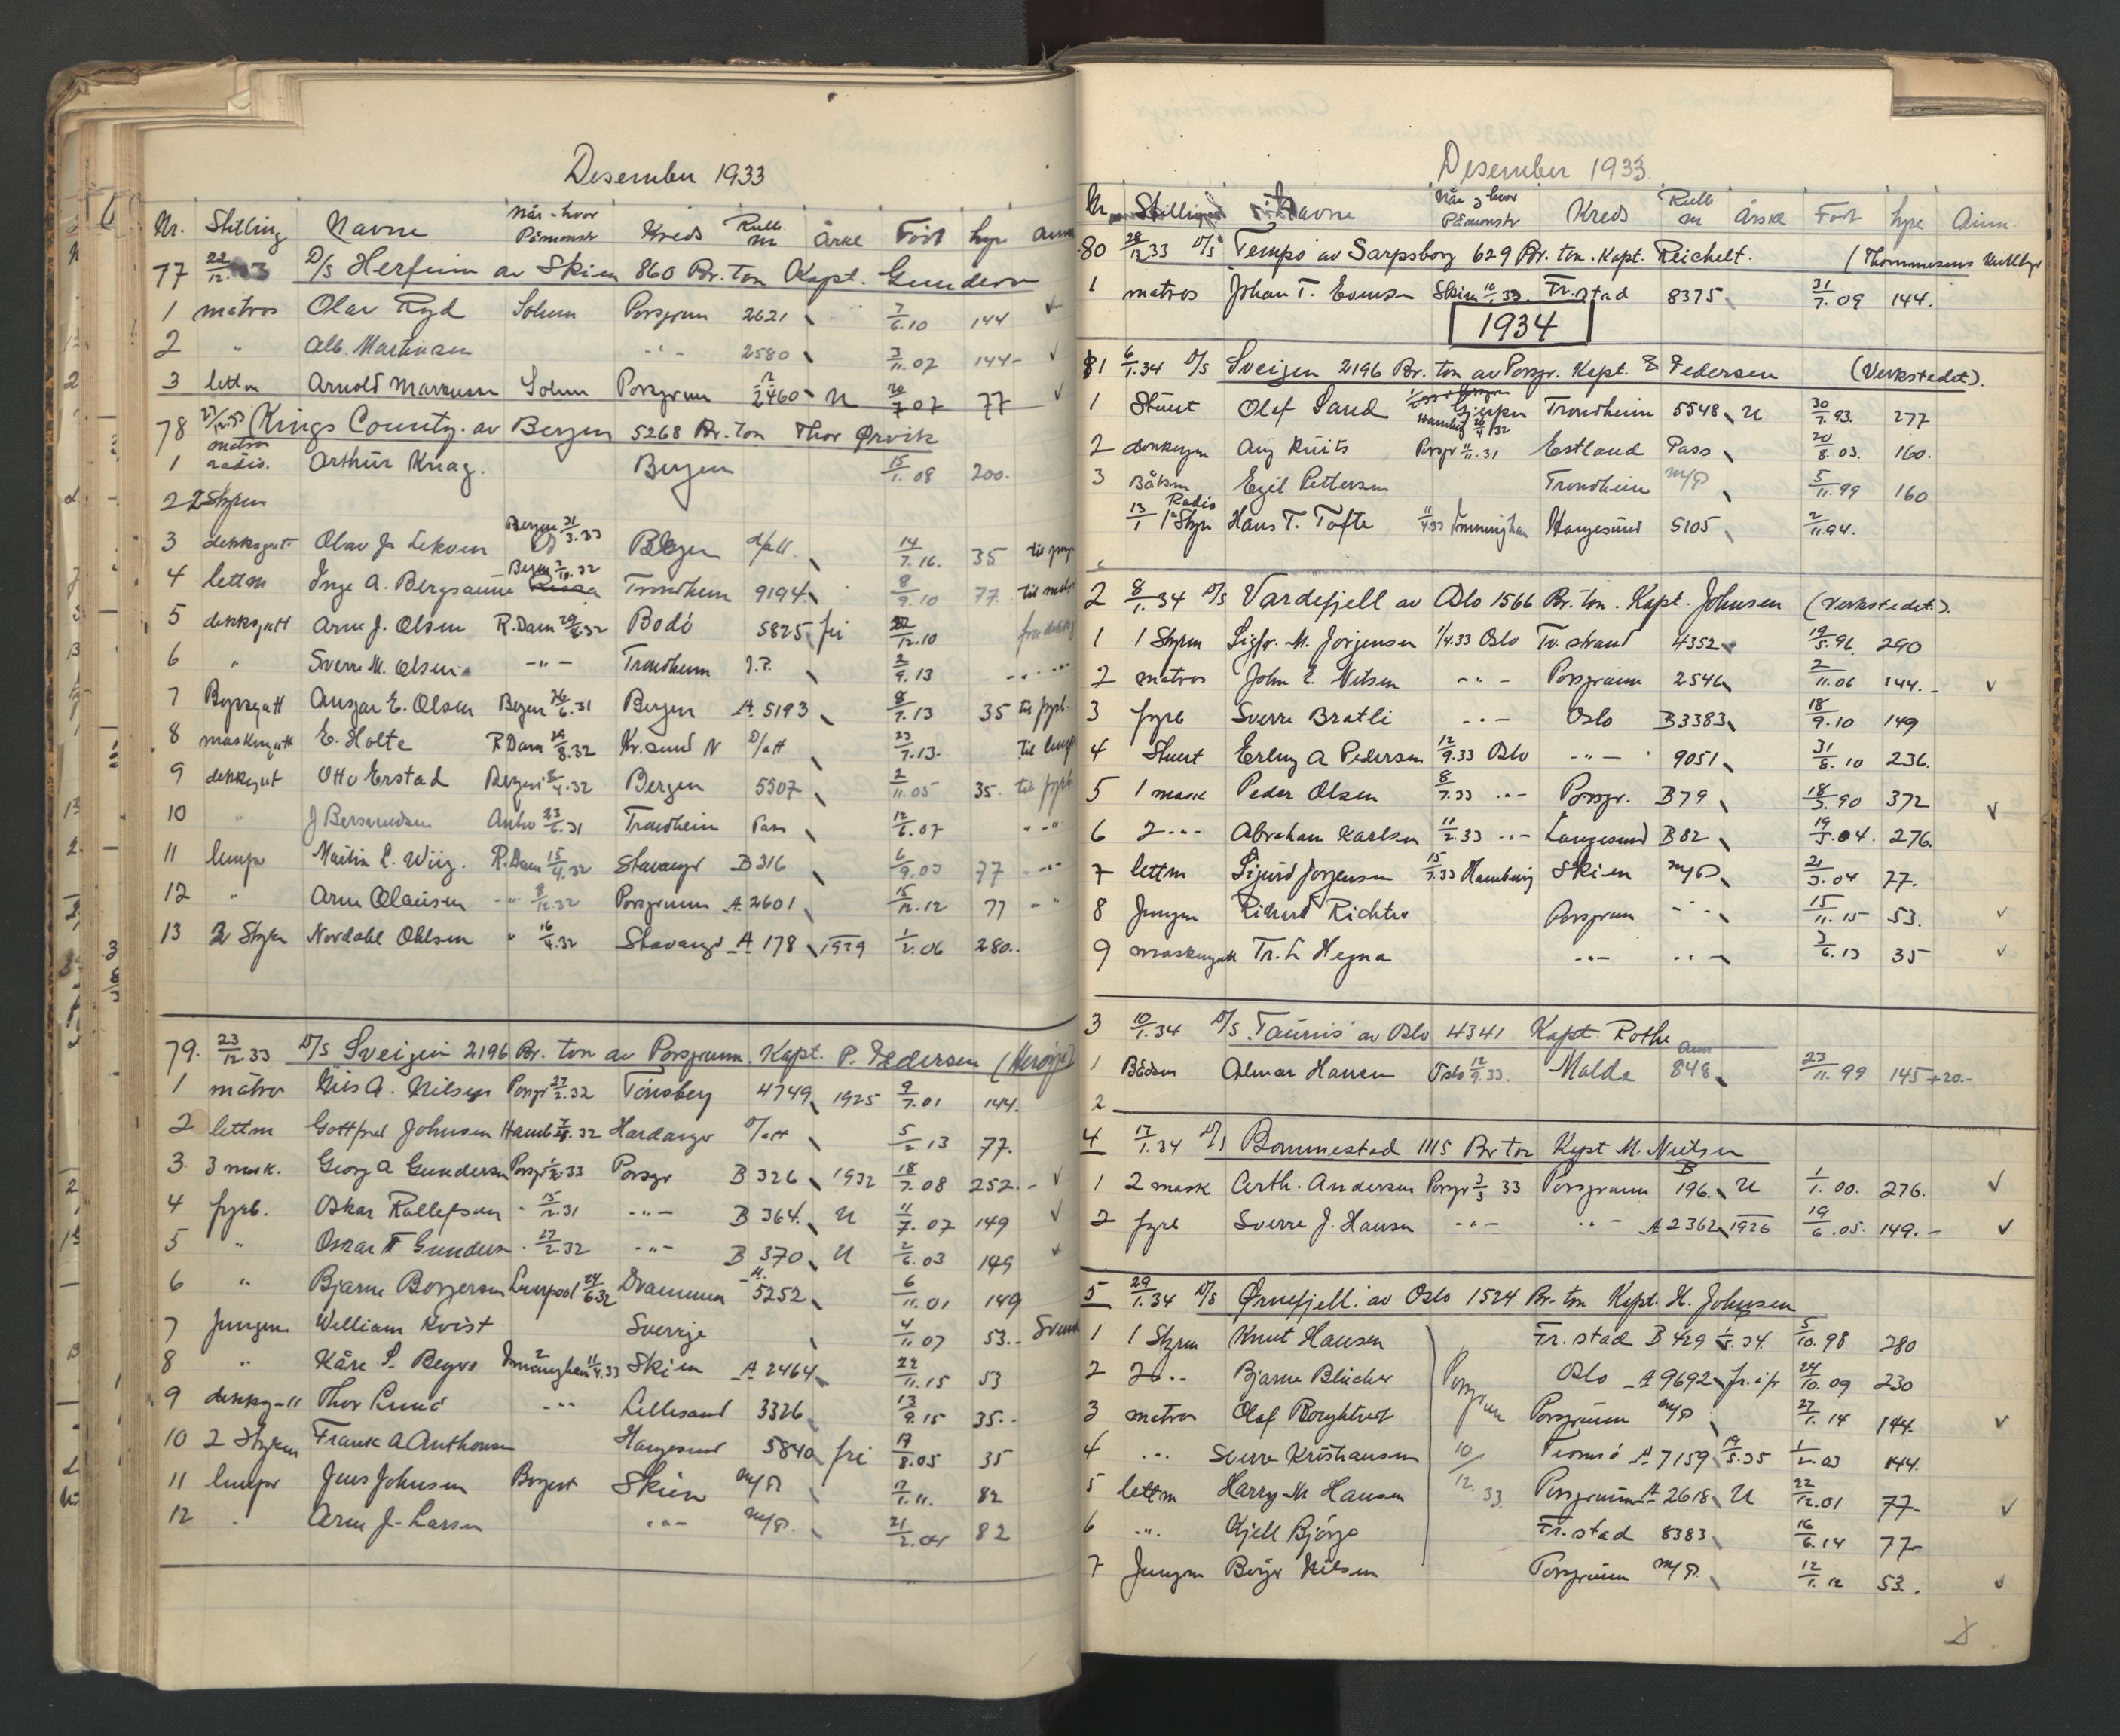 Desember 1933
Nr. Stilling Navne Når - hvor Påmonstr Kreds Rulle nr Årkl Født hyre Anm
77 22/12.33 D/s Herfinn av Skien 860 Br. ton Kapt. Gundersen
1 matros Olav Ryd Solum Porsgrunn 2621 7/6.10 144
2 " Alb. Martinsen -"- 2580 3/11.07 144-
3 lettm Arnold Markussen Solum Porsgrunn 2460 U 20/7 07 77
78 Kings County av Bergen 5268 Br. ton Thor Ørvik
1 radio. Arthur Knag. Bergen 15/1.08 200.
2 2 Styrm
3 dekksgutt Olav J. Bergen 31/3.33 Bergen 14/7.16. 35
4 lettm Inge A. Bergsaune Bergen Trondheim 9194 8/9.10 77. til matr
5 dekksgutt Arne J. Olsen R.Dam Bodö 5825 fri 12.10
6 " Sverre M. Olsen -"- Trondheim 9.13
7 Byssgutt Ansgar E. Olsen Bergen 26/6.31 Bergen A. 5193 8/7.13 35 til fyrb.
8 maskingutt E. Holte R.Dam 8.32 Kr.sund N 23/7.13. til
9 dekksgut Otto Erstad Bergen 4.32 Bergen 5307 2/11.05 35. til fyrb
10 " J Antw 23/6.31 Trondheim Pass 12/6.07 " - "
11 lemper Martin L. Wiig. R.Dam 15/4.32 Stavanger B 316 6/9.03 77 -"-
12 " Arne Olausen -" 8/12.32 Porsgrunn A. 2601 15/12.12 77 -"
13 2 Styrm Nordahl Ohlsen " 16/4.32 Stavanger A 178 1929 1/2.06 280..
79. 23/12.33 D/s Sveigen 2196 Br. ton av Porsgrunn. Kapt. P. Pedersen (Herøya)
1 matro Nils A. Nilsen Porsgr 27/2.32 Tönsberg 4749 1925 9/7.01 144.
2 lettm Gottfred Johnsen Hamb 32 Hardanger 5/2 13 77.
3. 3 mask. Georg A Gundersen Porsgr 33 Porsgr B 326 1932 18/7.08 252.-
4 fyrb. Oskar Rollefsen " 15/12.31 -"- B 364 U 11/7.07 149
5 " Oskar Gundersen " 27/2.32 -"- B 370 U 2/6.03 149
6 " Bjarne Borgersen Liverpool 24/6.32 Drammen A. 5252 6/11.01 149
7 Jungm William Kvist Sverrje 4/11.07 53.-
8 " Kåre S. 4.33 Skien A 2464 22/11.15 53
9 Thor Lund -"- Lillesand 3326 13/9.15 35.-
10 2 Styrm Frank A Anthonsen Haugesund 5840 fri 17/8.05 35
11 lemper Jens Johnsen Borgest Skien m/P 1.11. 82
12 " Arne J. Larsen -"- m/P. 21/2.04 82
Desember 1933.
Nr Stilling Navne Når og hvor Påmonstr Kreds Rulle nr Årskl Født hyre Anm.
80 28/12 33 D/s Tempo av Sarpsborg 629 Br. ton. Kapt. Reichelt.
1 matros Johan T. Evensen Skien 33. Fr.stad 8375 31/7.09 144.
1934
81 6/1.34 D/s Sveigen 2196 Br. ton av Porsgr. Kapt. Pedersen (Verkstedet).
1 Stuert Olaf Sand Trondheim 5548 U 30/7.93. 277
2 donkeym Aug Porsgr 11/11.31 Estland Pass 20/8.03. 160.
3 Båtsm Egil Pettersen Trondheim m/P 5/11.99 160
13/1 Radio 1ste Styrm Hans T. Tofte 11/4.33 Haugesund 5105 2/11.94.
2 8/1.34 D/s Vardefjell av Oslo 1566 Br. ton. Kapt. Johnsen (Verkstedet).
1 1 Styrm Sigfr. M. Jorgensen 1/4.33 Oslo Tv.strand 4352 19/5.96. 290
2 matros John E. Nilsen -"- Porsgrunn 2546 2/11.06 144.-
3 fyrb Sverre Bratli -"- Oslo B3383 18/9.10 149
4 Stuert Erling A Pedersen 12/9.33 Oslo -"- 9051 31/8.10 236.
5 1 mask Peder Olsen 8/7.33 -"- Porsgr. B79 18/3.90 372
6 2 -"- Abraham Karlsen 11/2.33 -"- Langesund B82 19/5.04. 276.
7 lettm Sigurd Jorgensen 15/7.33 Hamburg Skien m/P 21/3.04 77.
8 Jungm Rikard Richter Porsgrunn -"- 15/11.15 53.
9 maskingutt Tr. L Hegna -"- -"- 3/6.13 35
3 10/1.34 D/s Taurus av Oslo 4341 Kapt. Rothe
1 Bådsm Almar Hansen Oslo 12/9.33. Molde 848 23/11.99 145 + 20.-
2
4 17/1.34 D/s Bommestad 1115 Br ton Kapt M. Nielsen
1 2 mask Arth. Andersen Porsgr 3/3 33 Porsgrunn B 196. U 1/1.00. 276.
2 fyrb Sverre J. Hansen -"- -"- A 2362 1926 19/6.05. 149.-
5 29/1.34 D/s Ørnefjell. av Oslo 1524 Br. ton Kapt. H. Johnsen
1 1 Styrm Knut Hansen Porsgrunn 10/12.33 Fr.stad B 429 34. 5/10.98 280
2 2 -"- Bjarne Blücher Oslo A 9692 24/10.09 230
3 matros Olaf Porsgrunn m/P 27/1.14 144.
4 -"- Sverre Kristiansen Tromsö A 7159 19/5.35 1/2.03 144.
5 lettm Harry M Hansen Porsgrunn A 2618 U 22/12.01 77-
6 -"- Kjell Bjørgo Fr.stad 8383 16/6.14 77-
7 Jungm Birger Nilsen Porsgrunn m/P. 12/1.12 53.